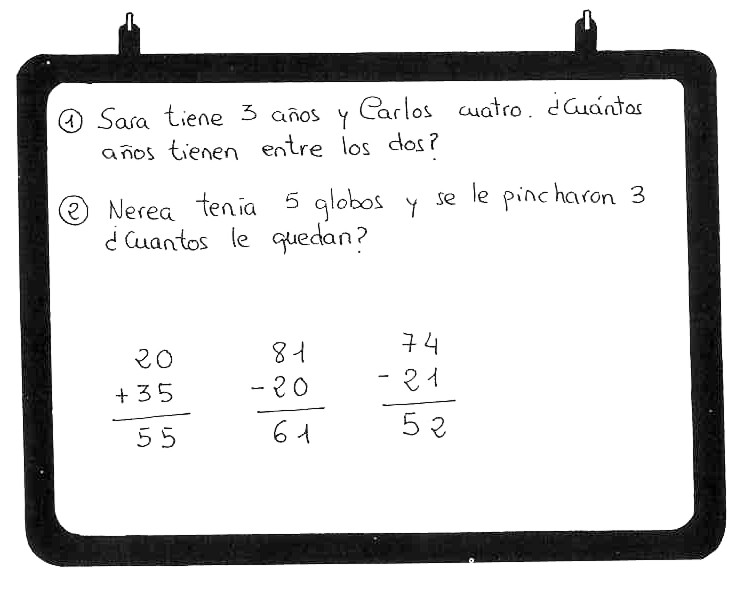 ① Sara tiene 3 años y Carlos cuatro. ¿Cuántos
años tienen entre los dos?
② Nerea tenía 5 globos y se le pincharon 3
¿Cuantos le quedan?
20 81 74
+35 -20 -21
55 61 52